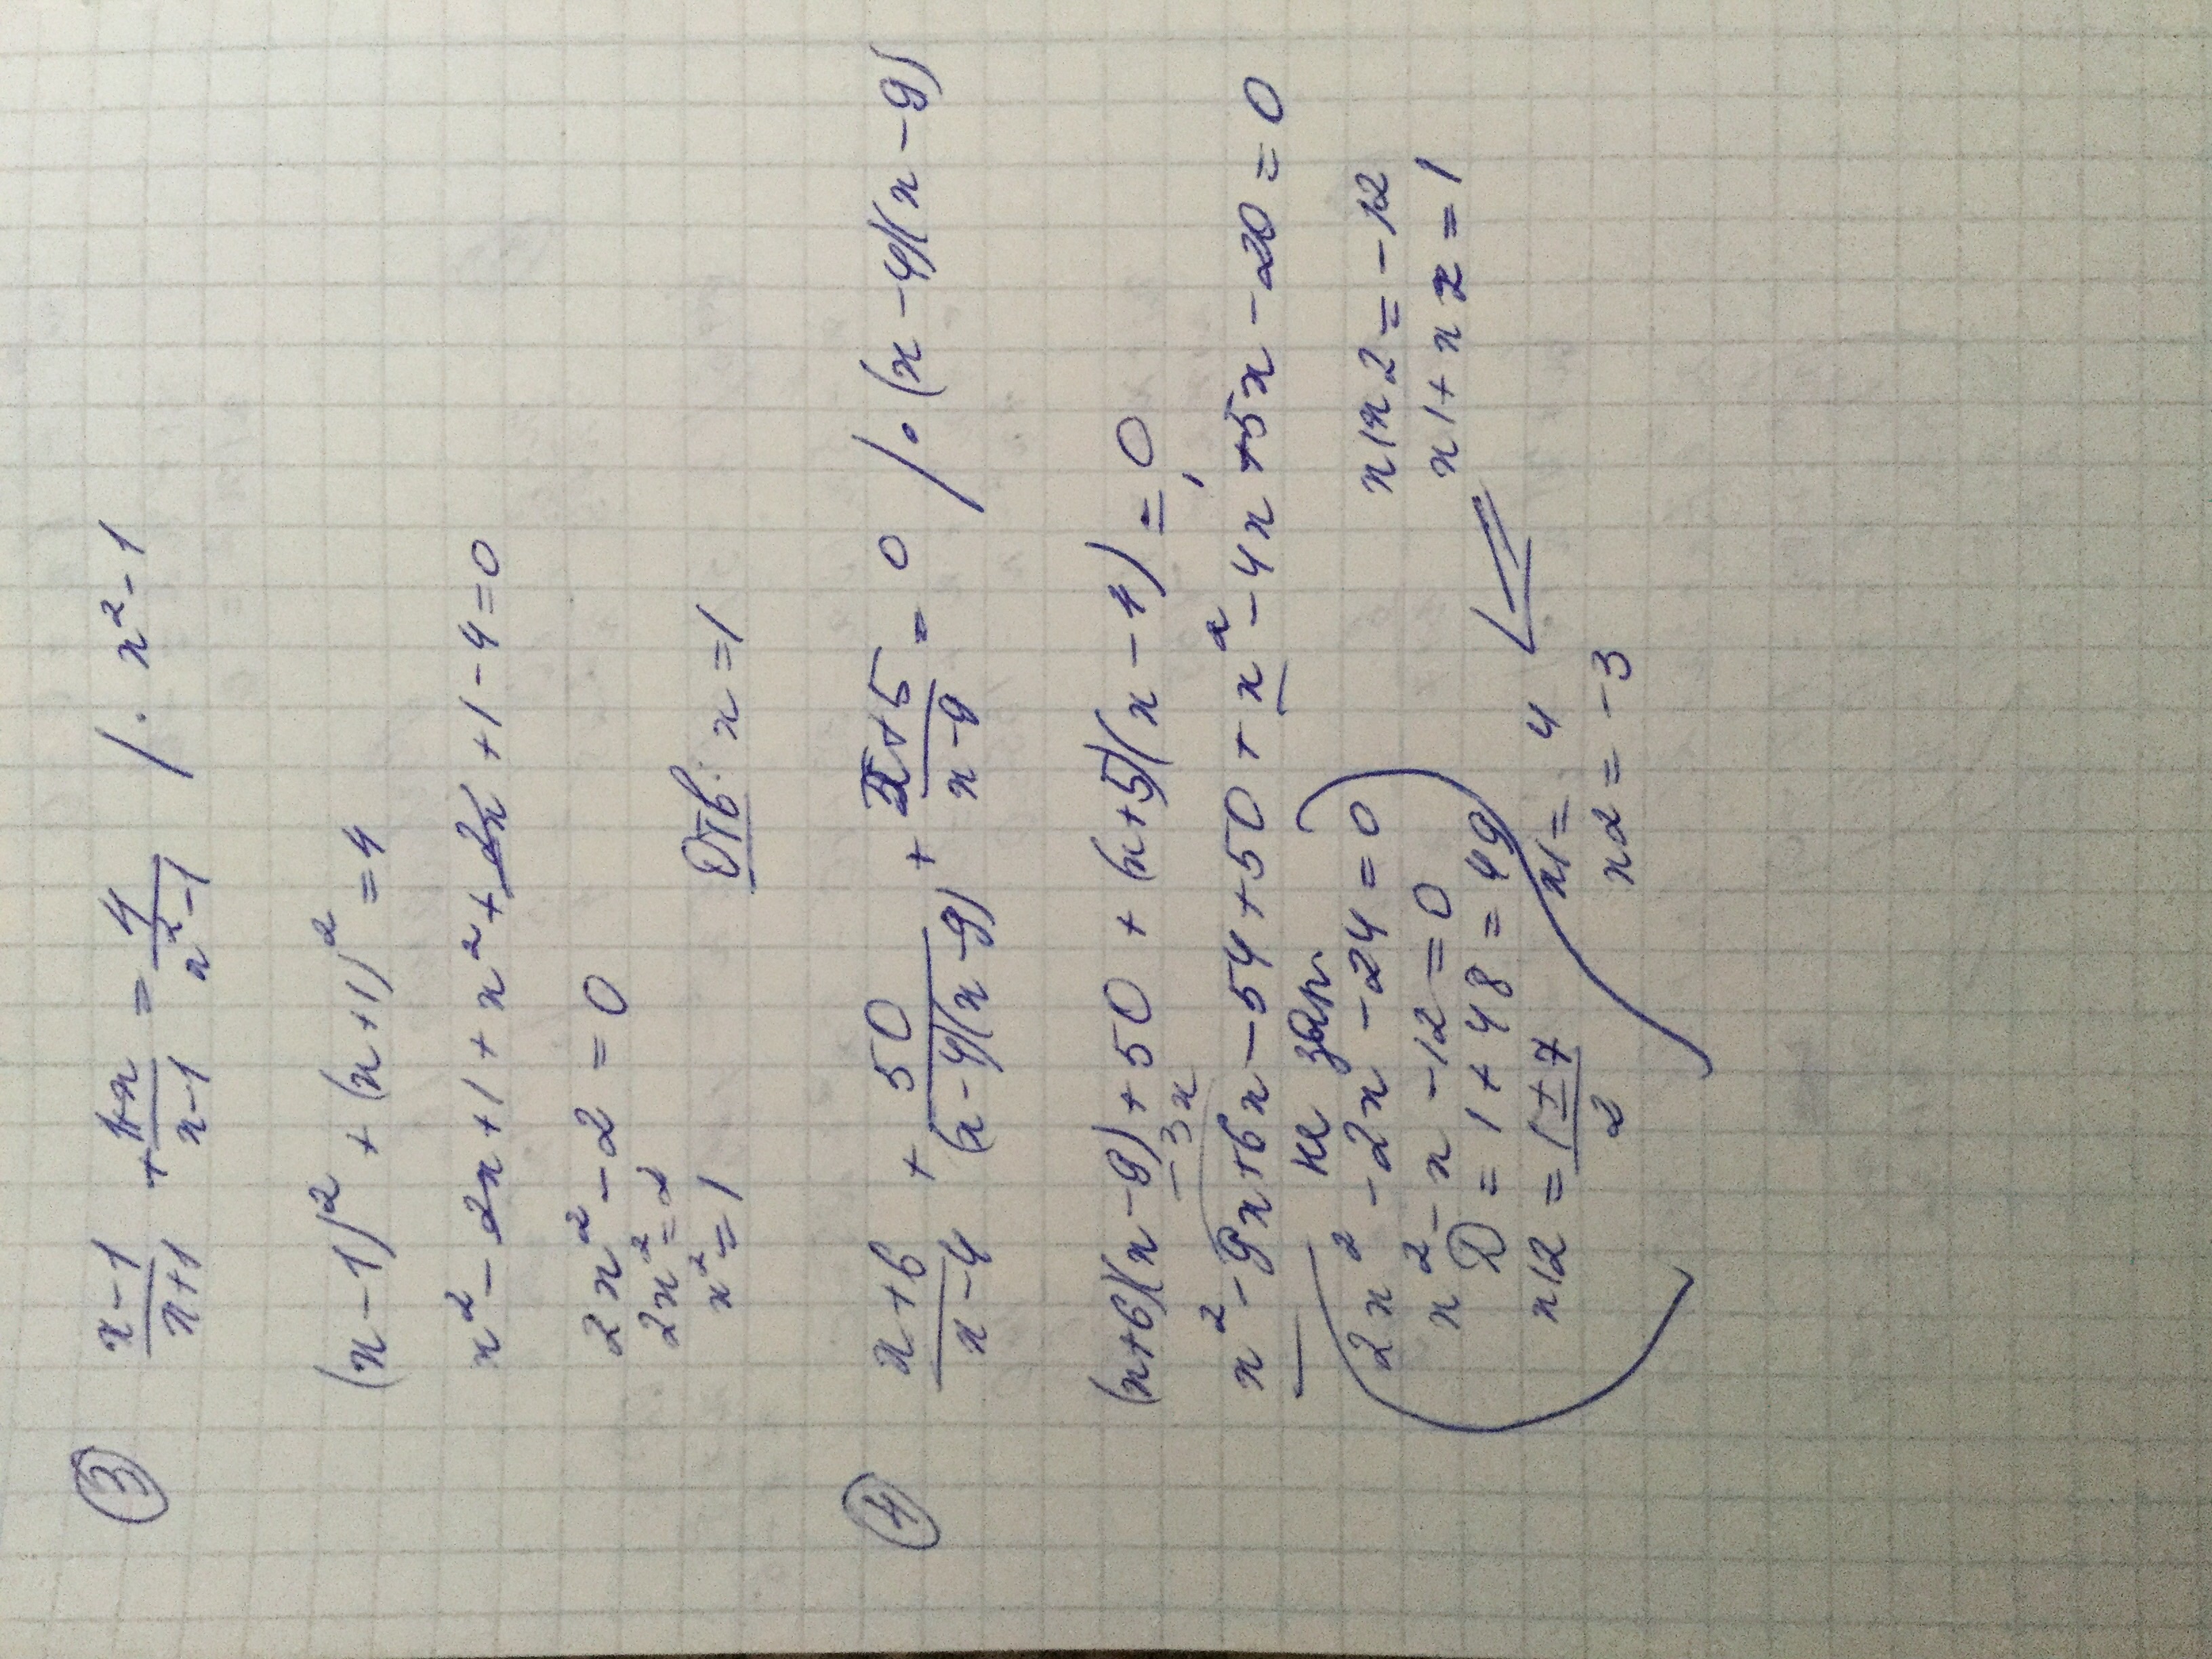 ③ x-1/x+1 + 1+x/x-1 = 4/x²-1 /· x²-1
(x-1)² + (x+1)² = 4
x² - 2x + 1 + x² + 2x + 1 - 4 = 0
2x² - 2 = 0
2x² = 2
x² = 1
Отв: x = 1
④ x+6/x-4 + 50/(x-4)(x-9) + x+5/x-9 = 0 /· (x-4)(x-9)
(x+6)(x-9) + 50 + (x+5)(x-4) = 0
-3x
x² - 9x + 6x - 54 + 50 + x² - 4x + 5x - 20 = 0
не
2x² - 2x - 24 = 0
x² - x - 12 = 0
D = 1 + 48 = 49
x12 = 1±7/2
x1x2 = -12
x1 + x2 = 1
x1 = 4
x2 = -3